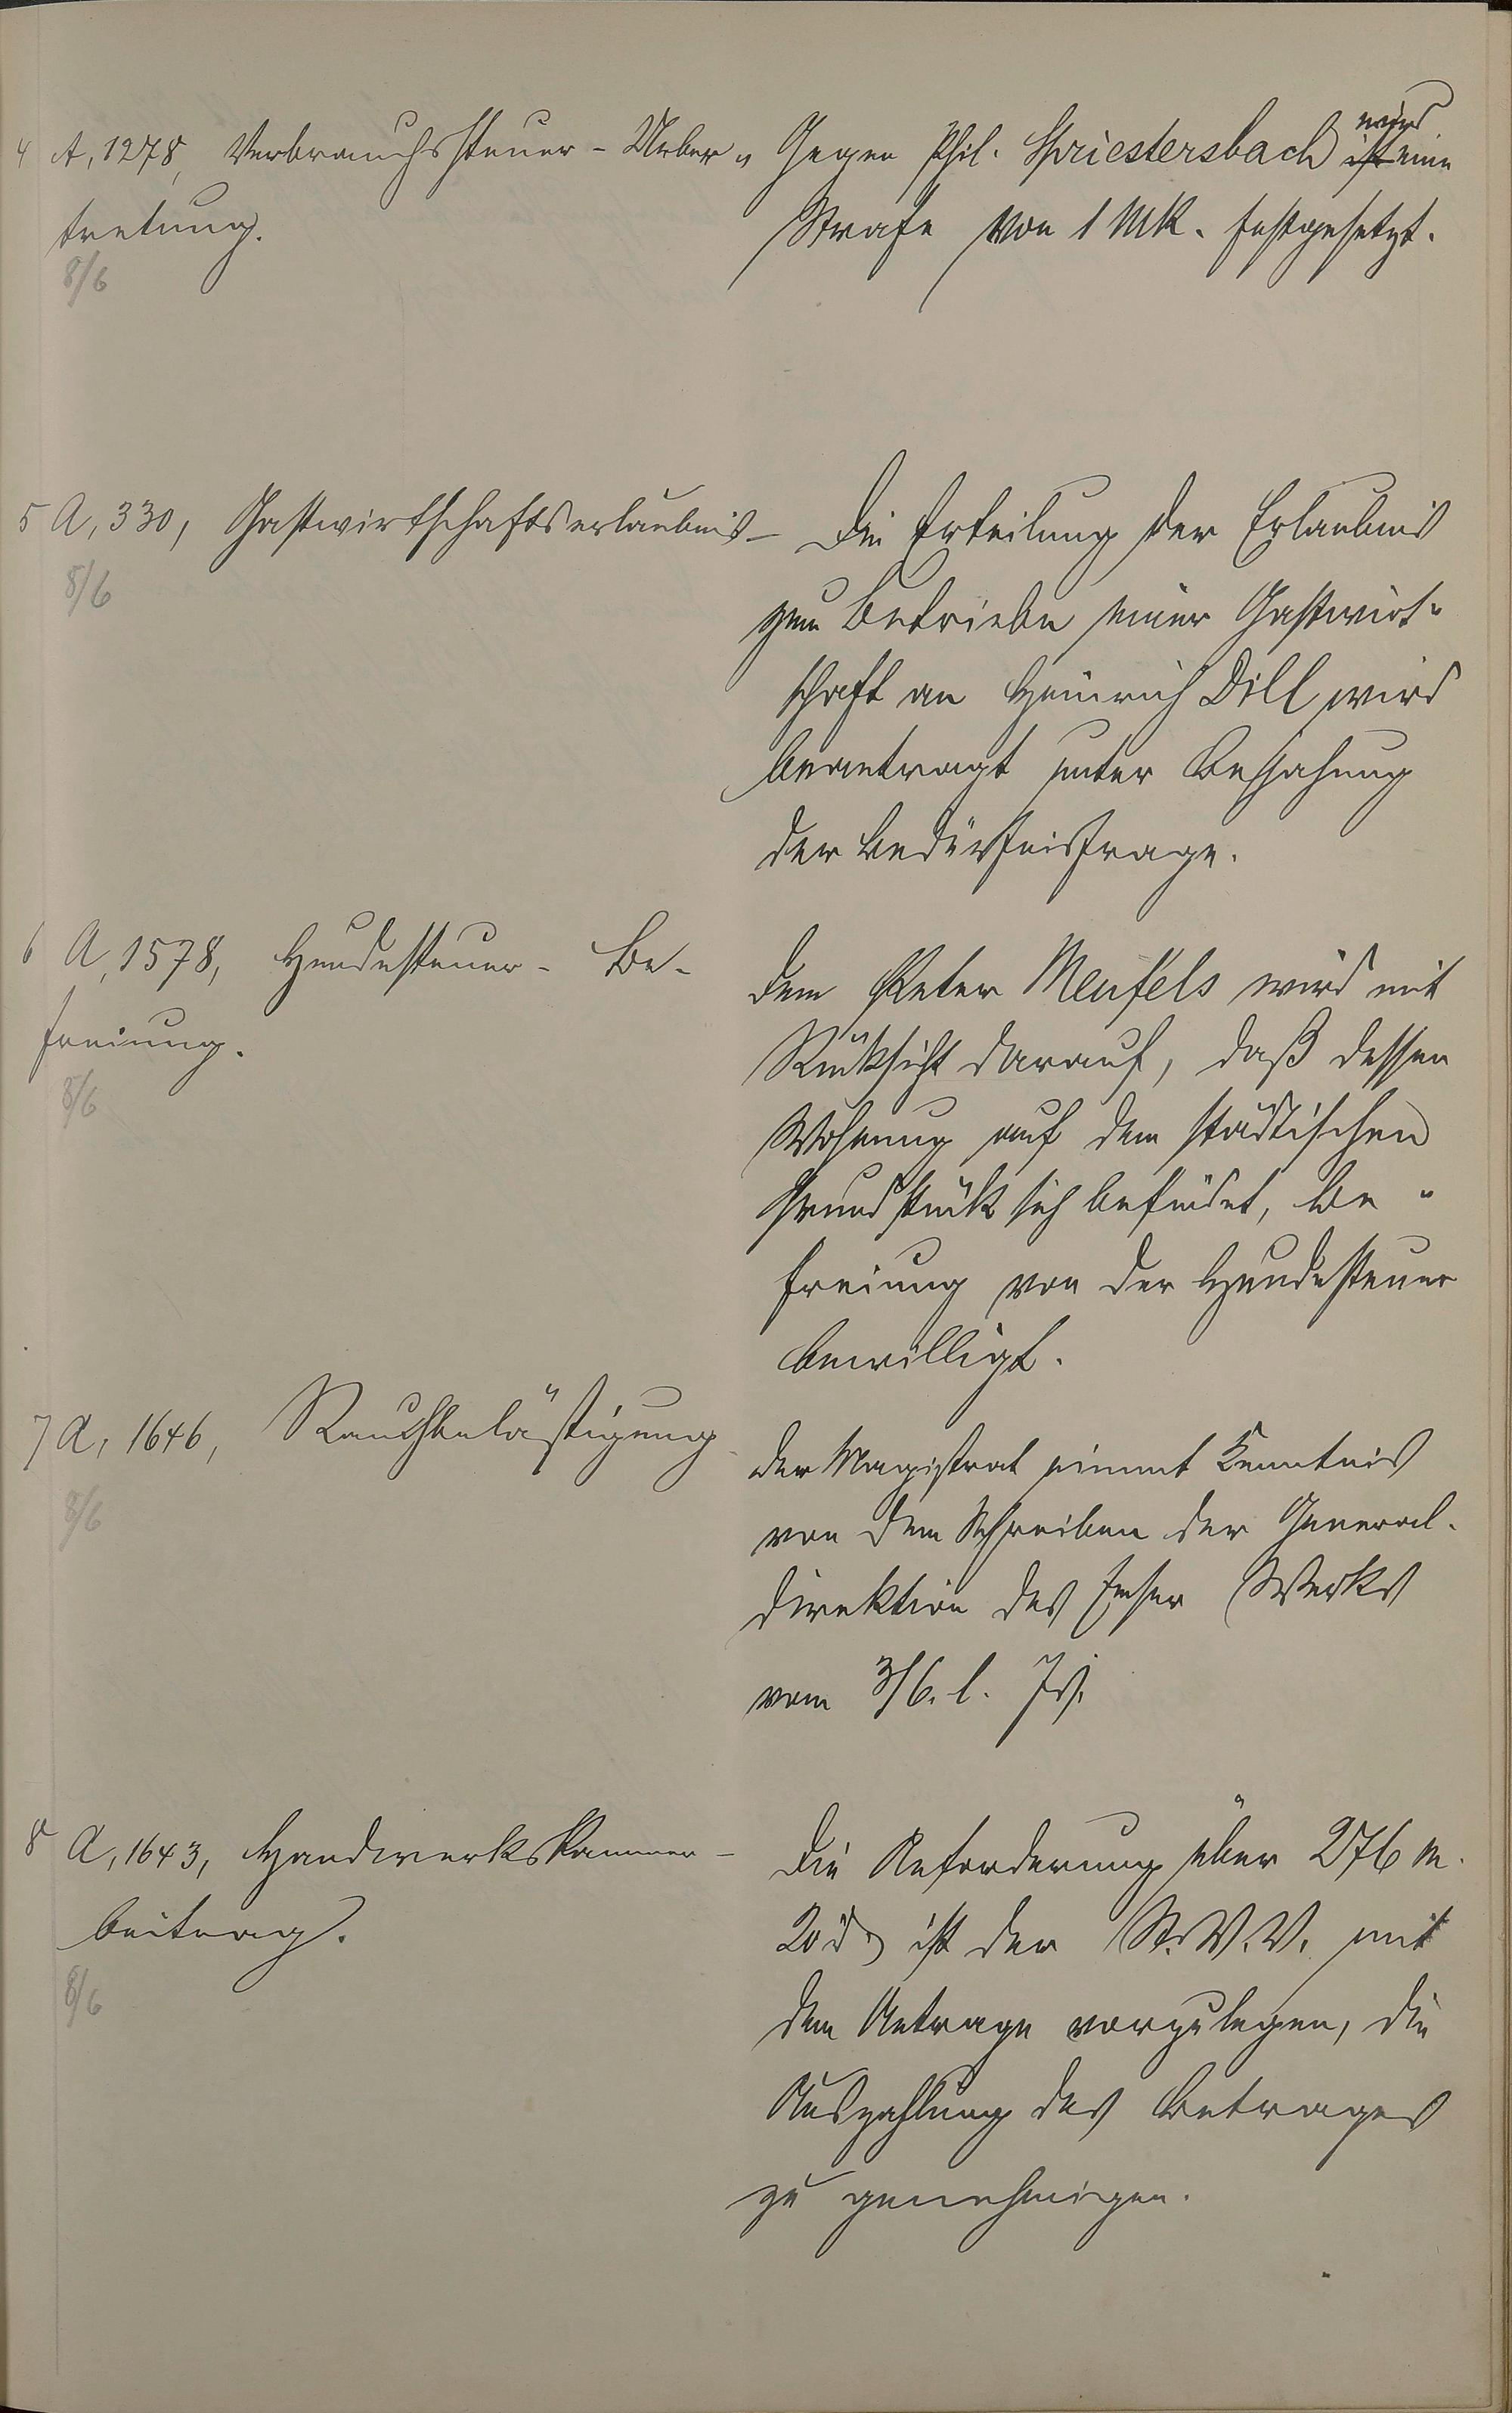 4 A, 1278, Verbrauchssteuer - Ueber-
tretung.
8/6
Gegen Phil. Spriestersbach ist wird eine
Strafe von 1 Mk. festgesetzt.
5 A, 330, Gastwirtschaftserlaubnis -
8/6
Die Erteilung der Erlaubnis
zum Betriebe einer Gastwirt-
schaft an Heinrich Dill wird
beantragt unter Bejahung
der Bedürfnisfrage.
6 A, 1578, Hundesteuer - Be-
freiung.
8/6
Dem Peter Meufels wird mit
Rücksicht darauf, daß dessen
Wohnung auf dem städtischen
Grundstück sich befindet, Be-
freiung von der Hundesteuer
bewilligt.
7 A, 1646, Rauchbelästigung
8/6
Der Magistrat nimmt Kenntnis
von dem Schreiben der General-
direktion des Emser Werks
vom 3/6. l. Js.
8 A, 1643, Handwerkskammer-
beitrag.
8/6
Die Anforderung über 276 M.
20 d ist der St. V. V. mit
dem Antrage vorzulegen, die
Auszahlung des Betrages
zu genehmigen.